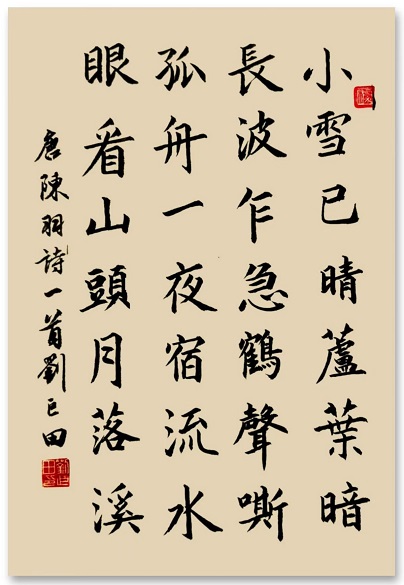 小雪已晴蘆葉暗
長波乍急鶴聲嘶
孤舟一夜宿流水
眼看山頭月落溪
唐陳羽詩一首劉田